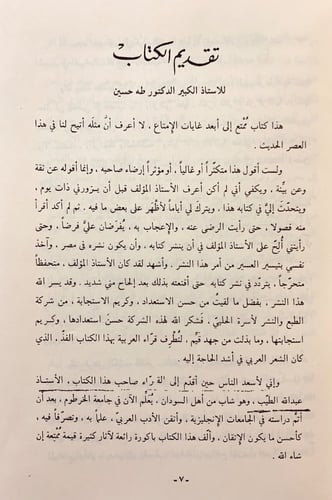 تقديم الكتاب
للاستاذ الكبير الدكتور طه حسين
هذا كتاب ممتع إلى أبعد غايات الإمتاع ، لا أعرف أنَّ مثله أتيح لنا في هذا
العصر الحديث .
ولست أقول هذا متكثّراً أو غالياً ، أو مؤثراً إرضاء صاحبه ، وإنما أقوله عن ثقة
وعن بيِّنة . ويكفي أني لم أكن أعرف الأستاذ المؤلف قبل أن يزورني ذات يوم ،
ويتحدّث إليّ في كتابه هذا ، ويترك لي أياماً لأظهر على بعض ما فيه . ثم لم أكد أقرأ
منه فصولا ، حتى رأيت الرضى عنه ، والإعجاب به ، يُفرَضان عليَّ فرضاً ، وحتى
رأيتني أُلحّ على الأستاذ المؤلف في أن ينشر كتابه ، وأن يكون نشره في مصر ، وآخذ
نفسي بتيسير العسير من أمر هذا النشر . وأشهد لقد كان الأستاذ المؤلف ، متحفظاً
متحرّجاً ، يتردّد في نشر كتابه حتى أقنعته بذلك بعد إلحاح مني شديد . وقد يسر الله
هذا النشر ، بفضل ما لقيتُ من حسن الاستعداد ، وكريم الاستجابة ، من شركة
الطبع والنشر لأسرة الحلبيّ ، فأشكر لله هذه الشركة حسن استعدادها ، وكريم
استجابتها ، وما بذلت من جهد قيِّم ، لتُطرف قرّاء العربية بهذا الكتاب الفذّ ، الذي
كان الشعر العربي في أشد الحاجة إليه .
وإني لأسعد الناس حين أقدِّم إلى القرّاء صاحب هذا الكتاب ، الأستاذ
عبدالله الطيّب ، وهو شاب من أهل السودان ، يُعلّم الآن في جامعة الخرطوم ، بعد أن
أتمّ دراسته في الجامعات الإنجليزية ، وأتقن الأدب العربيّ ، علماً به ، وتصرّفاً فيه ،
كأحسن ما يكون الإتقان ، وألّف هذا الكتاب باكورة رائعة لآثار كثيرة قيمة ممتعة إن
شاء الله .
- ٧ -